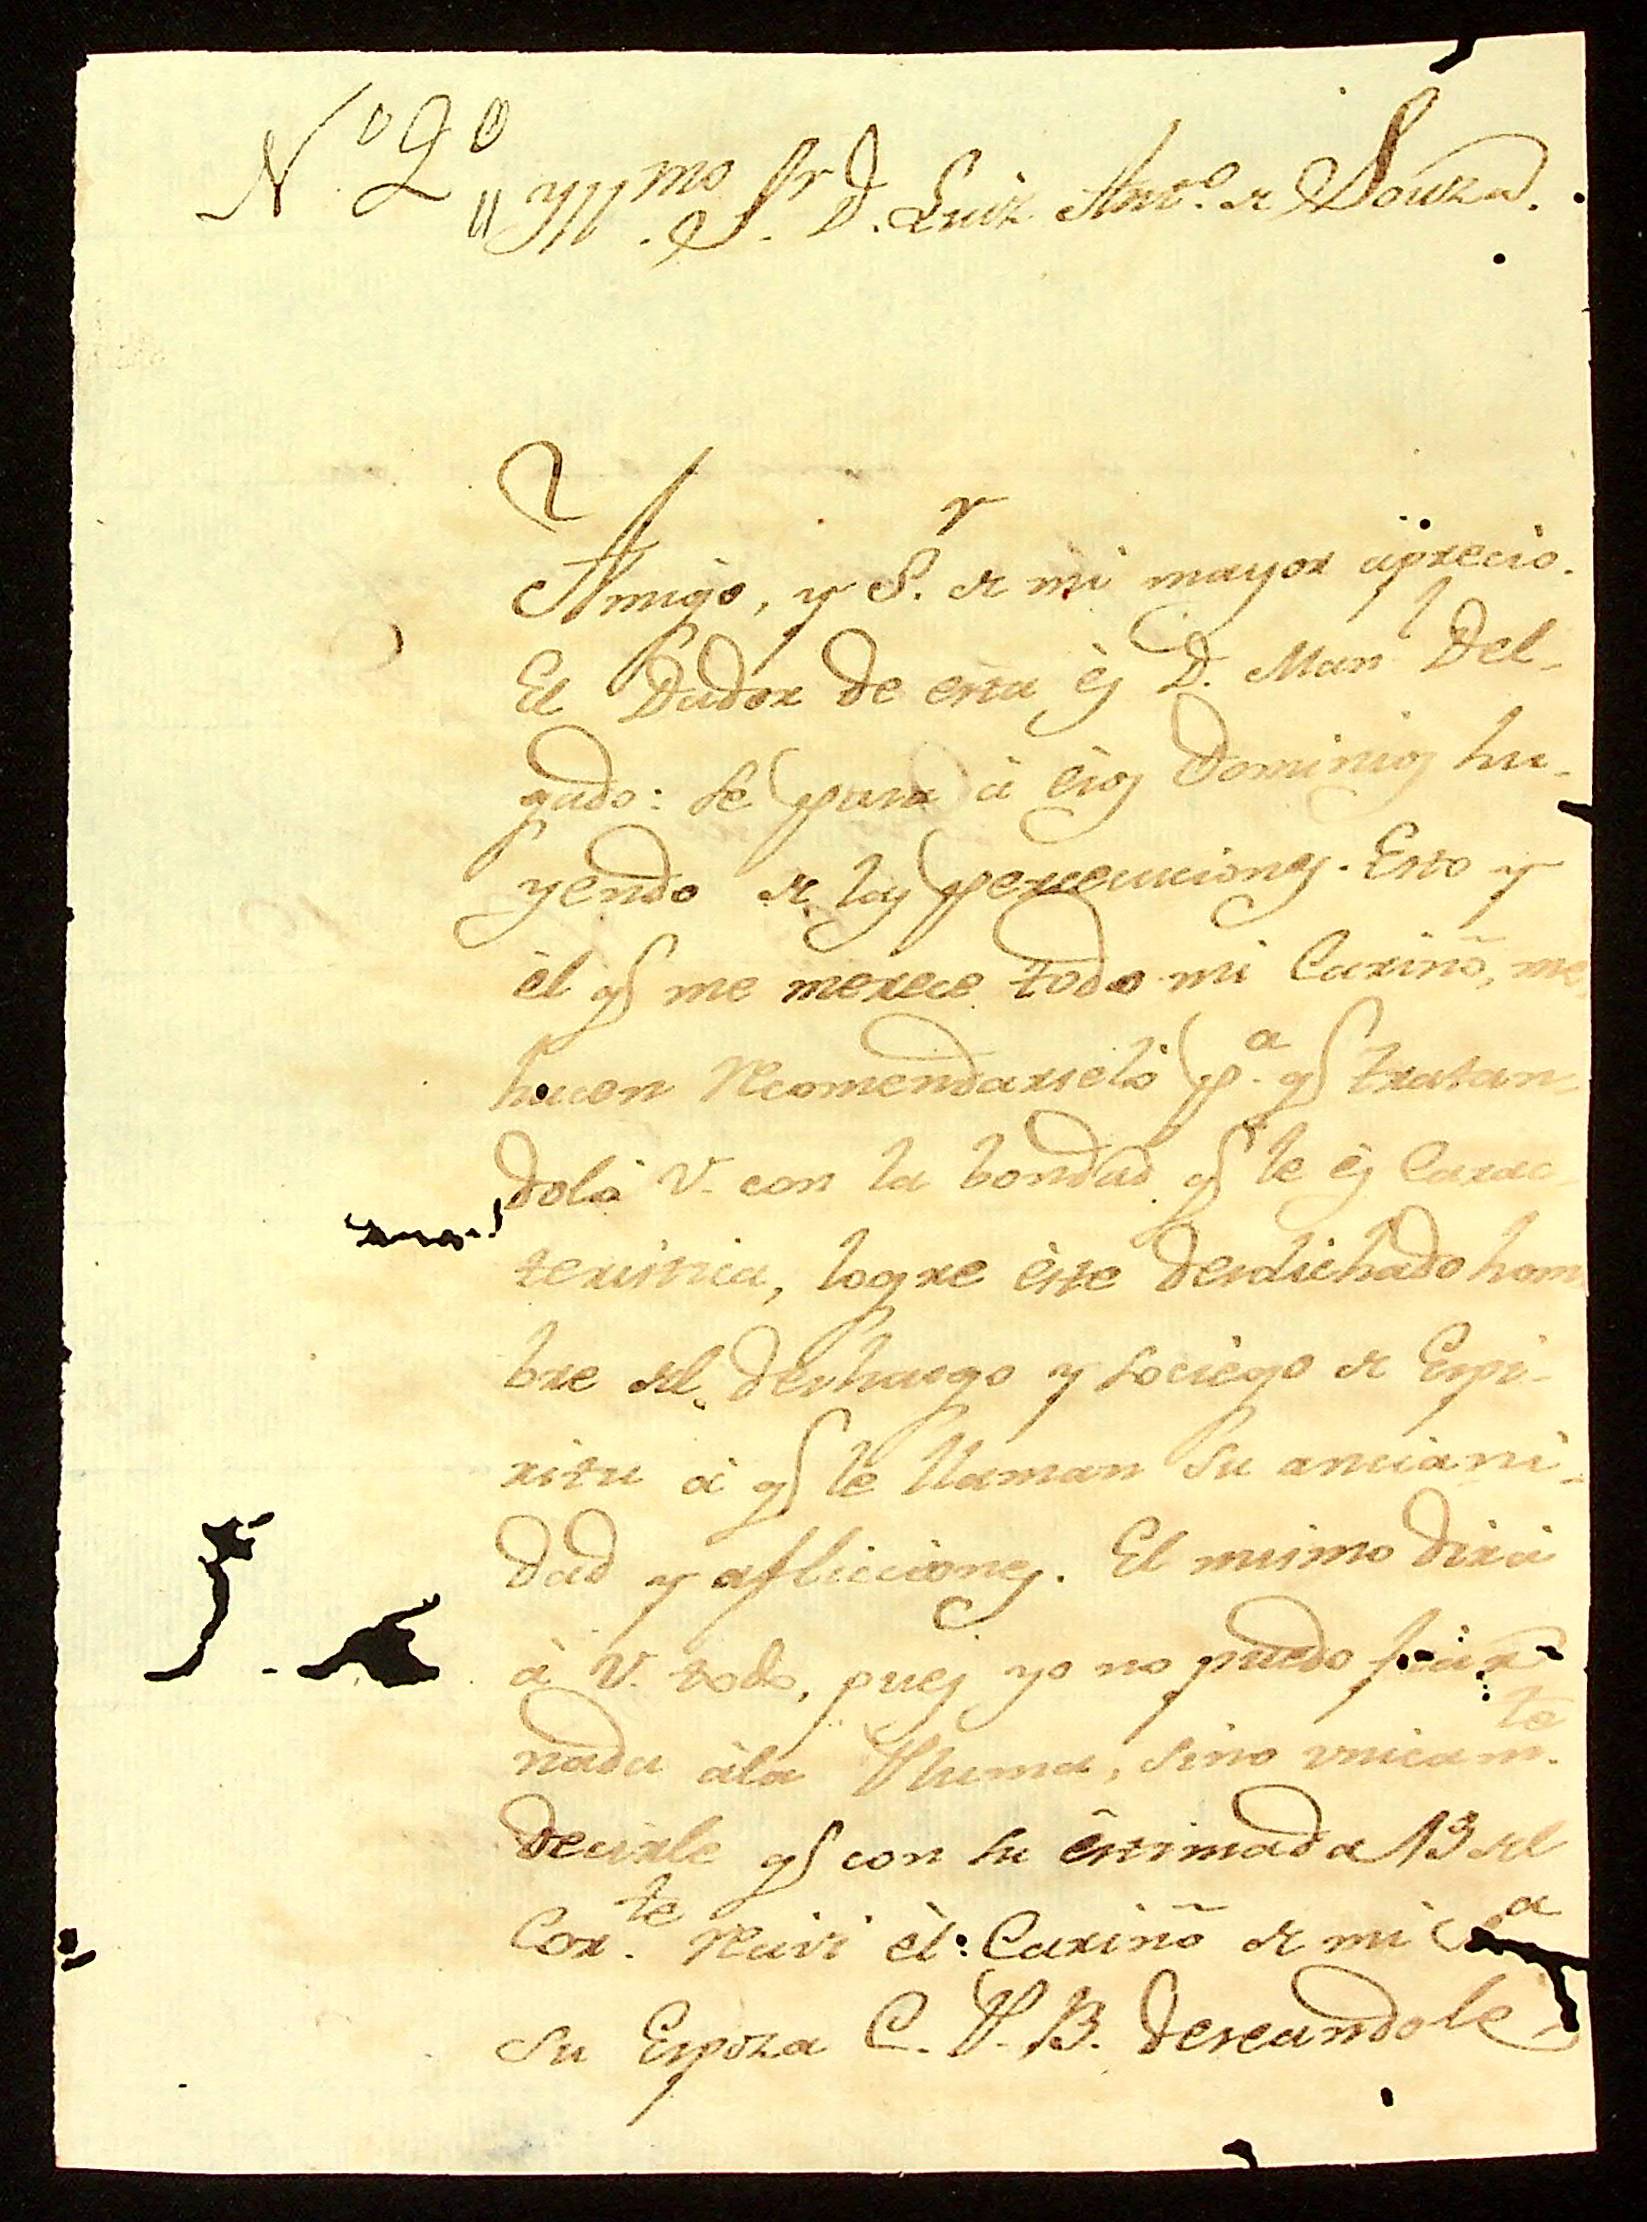 Nº 2º
Yllmo. Sr. D. Luiz Anto. de Souza.
Amigo, y Sr. de mi mayor aprecio.
El Dador de esta ès D. Man Del-
gado: se pasa à èsos Dominios hu-
yendo de las persecuciones. Esto y
èl qe me merece todo mi Cariño, me
hacen recomendarselo pa. qe tratan
dolo V. con la bondad qe le ès Carac
teristica, logre èste desdichado hom
bre del deshaogo y sociego de Espi-
ritu à qe le llaman su anciani-
dad y aflicciones. El mismo dirà
à V. todo, pues yo no puedo fiar
nada àla Pluma, sino unicamte.
decirle qe con su èstimada 13 del
Corte. recivi èl Cariño de mi Sa
su Espoza C. P. B. deseandole